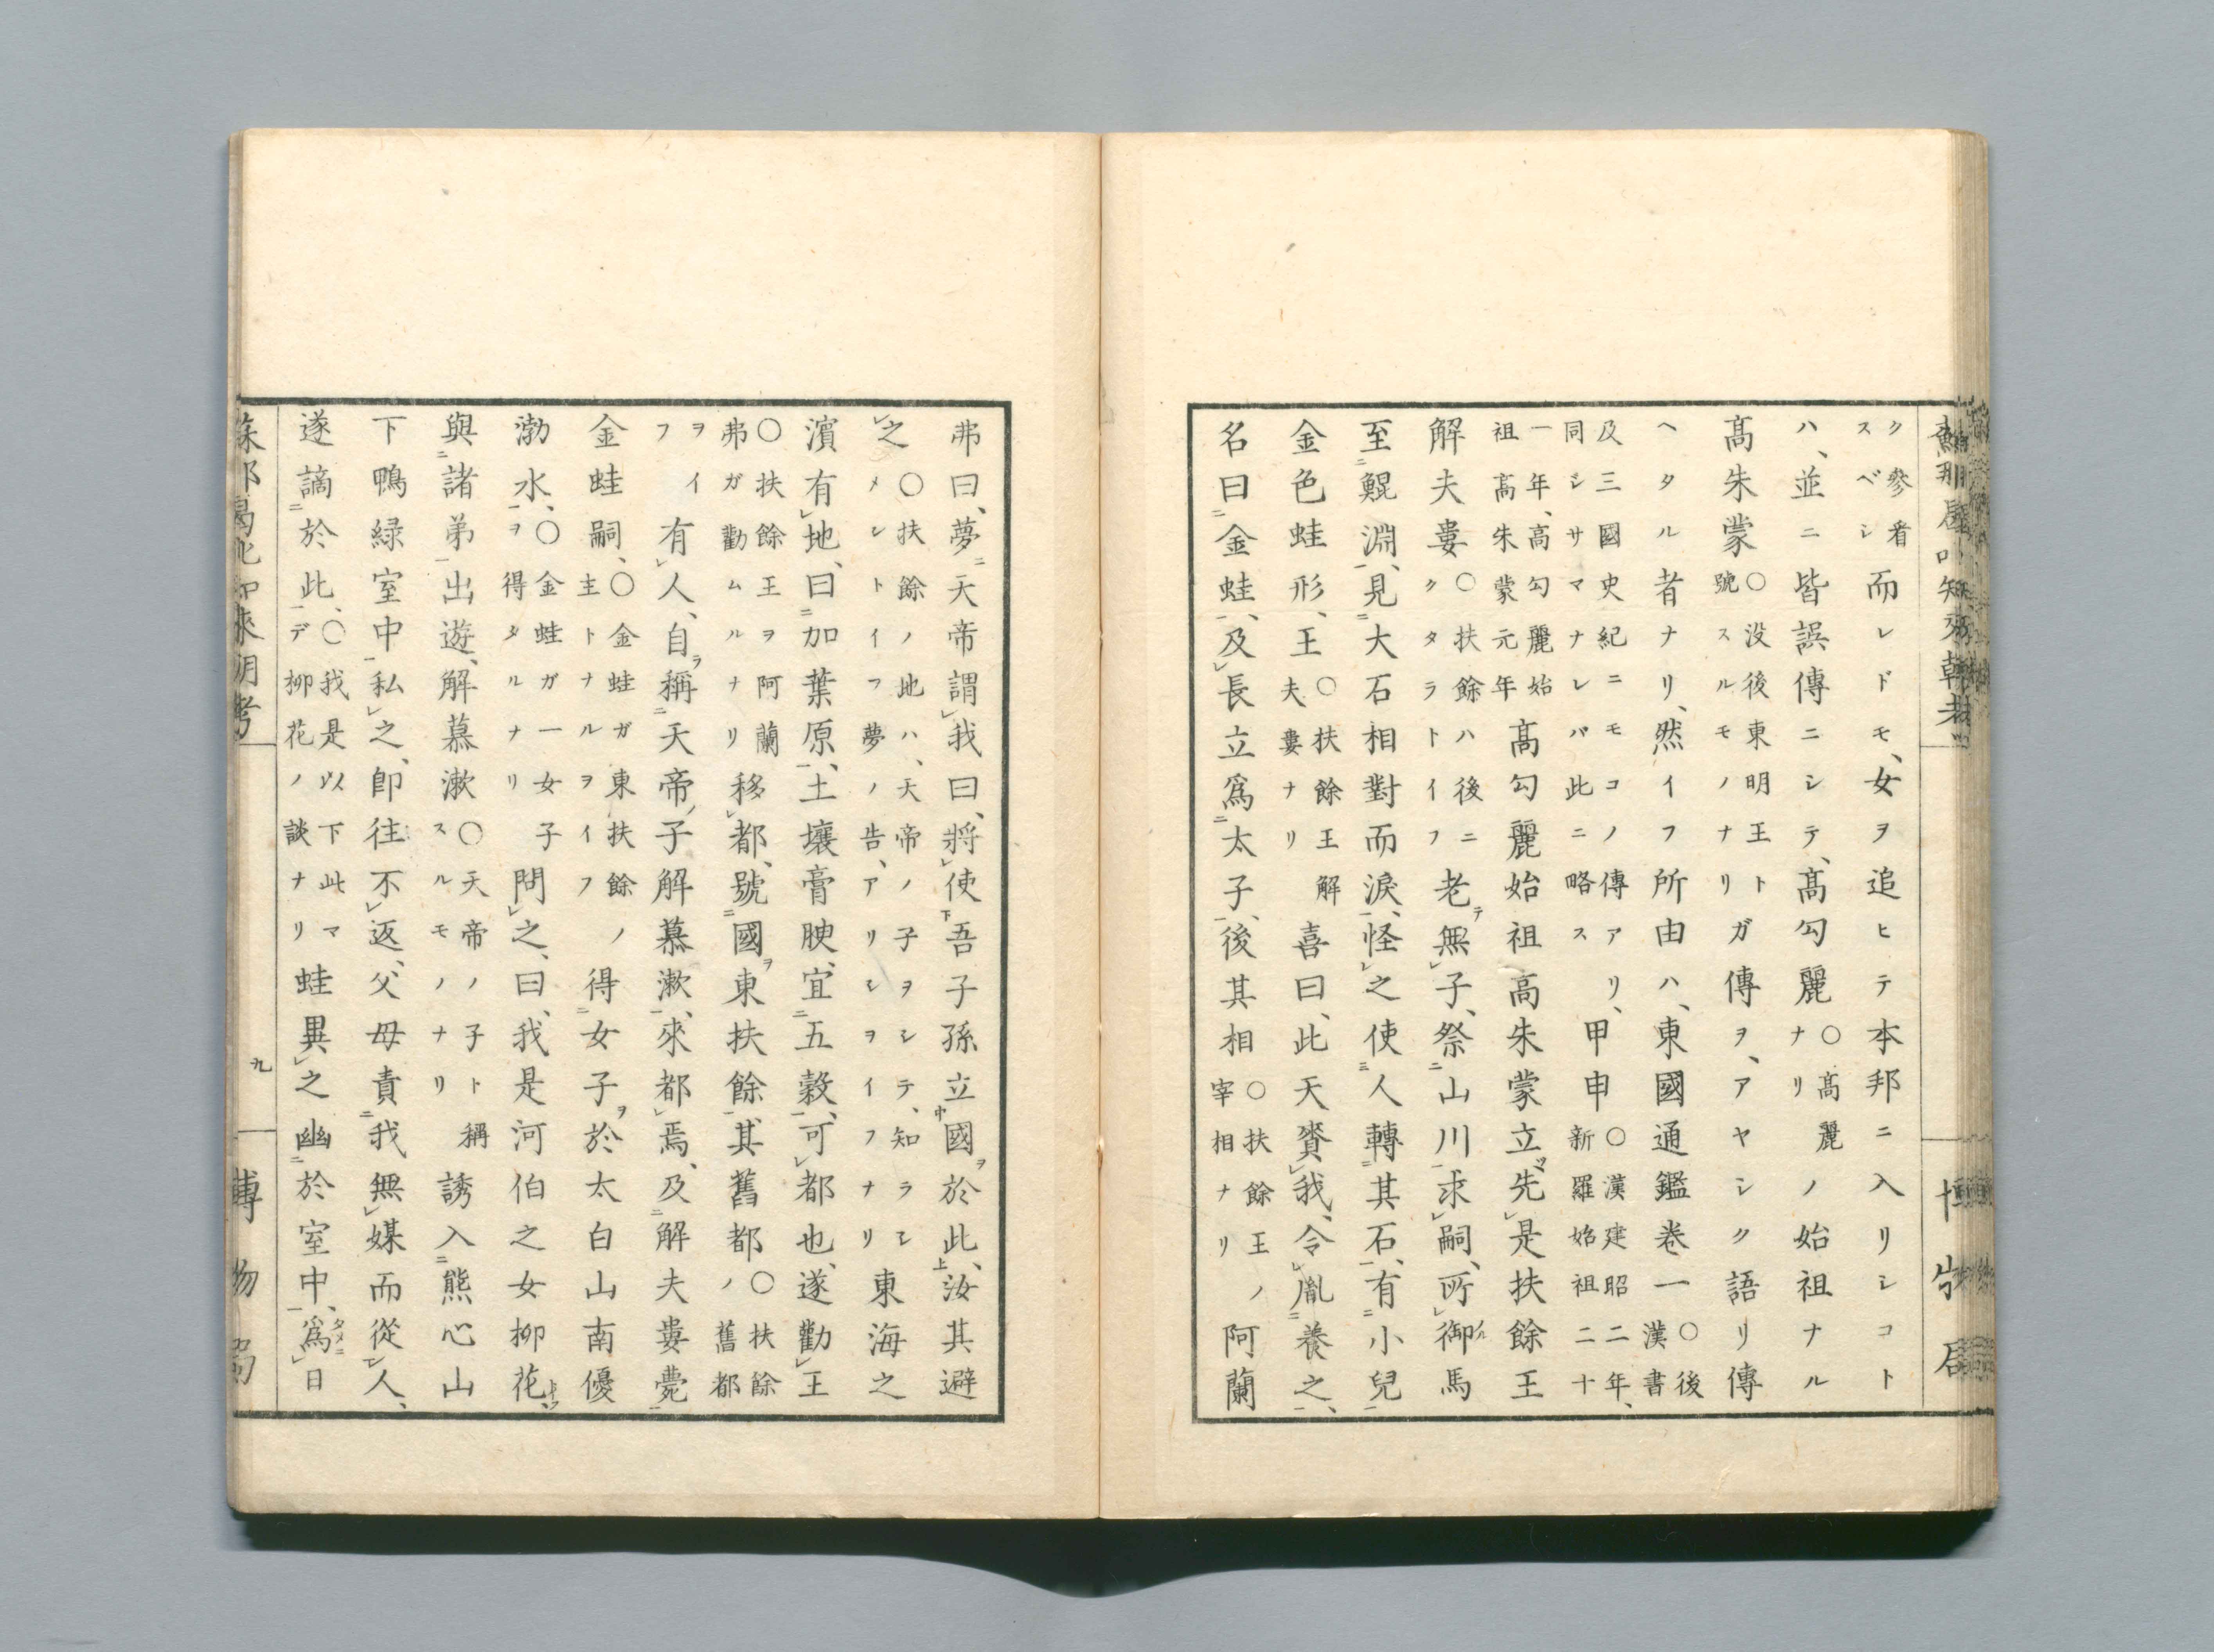 ク參看スベシ而レドモ、女ヲ追ヒテ本邦ニ入リシコト
ハ、並ニ皆誤傳ニシテ、髙勾麗〇髙麗ナリノ始祖ナル
髙朱蒙〇没後東明王ト號スルモノナリガ傳ヲ、アヤシク語リ傳
ヘタル者ナリ、然イフ所由ハ、東國通鑑卷一〇後漢書
及三國史紀ニモコノ傳アリ、同シサマナレバ此ニ略ス甲申〇漢建昭二年、新羅始祖二十
一年、高勾麗始祖高朱蒙元年髙勾麗始祖高朱蒙立、先是扶餘王
解夫婁〇扶餘ハ後ニクタラトイフ老テ無子、祭山川求嗣、所御馬
至鯤淵、見大石相對而淚、怪之使人轉其石、有小兒
金色蛙形、王〇扶餘王解夫婁ナリ喜曰、此天賚我、令胤養之、
名曰金蛙、及長立爲太子、後其相〇扶餘王ノ宰相ナリ阿蘭
弗曰、夢天帝謂我曰、將使吾子孫立國ヲ於此、汝其避
之〇扶餘ノ地ハ、天帝ノ子ヲシテ、知ラシメシトイフ夢ノ告、アリシヲイフナリ東海之
濱有地、曰加葉原、土壤膏腴、宜五穀、可都也、遂勸王
〇扶餘王ヲ阿蘭弗ガ勸ムルナリ移都、號國ヲ東扶餘、其舊都ノ〇扶餘舊都
ヲイフ有人、自ラ稱天帝ノ子解慕漱、來都焉、及解夫婁薨
金蛙嗣、〇金蛙ガ東扶餘ノ主トナルヲイフ得女子ヲ於太白山南優
渤水、〇金蛙ガ一女子ヲ得タルナリ問之、曰、我是河伯之女柳花、
與諸弟出遊、解慕漱〇天帝ノ子ト稱スルモノナリ誘入熊心山
下鴨緑室中私之、卽往不返、父母責我無媒而從人、
遂謫於此、〇我是以下此マデ柳花ノ談ナリ蛙異之幽於室中、爲日
九
博物局